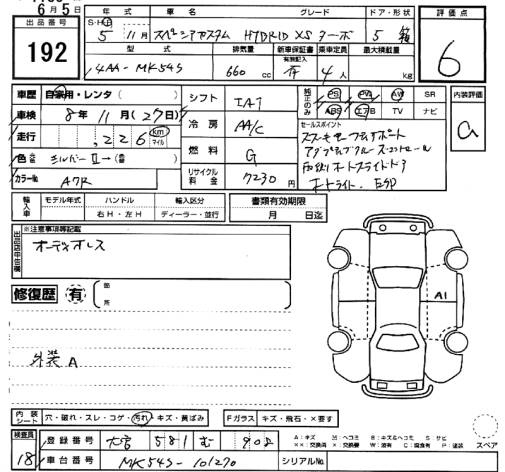 6月5日
出品番号
192
年式 車名 グレード ドア・形状
S・H・
5 11月 スペーシアカスタム HYBRID XSターボ 5 箱
型式 排気量 新車保証書 乗車定員 最大積載量
有無記入
4AA-MK54S 660cc 有 4人 kg
評価点
6
車歴 自家用・レンタ( )
車検 8年11月(27日)
走行 ,226 km マイル
色 シルバーⅡ→( )
カラーNo. A7R
シフト IAT
冷房 AA/C
燃料 G
リサイクル料金 7230円
純正のみ PS PW AW SR
ABS エアB TV ナビ
セールスポイント
アダプティブクルーズコントロール
両側オートスライドドア
オートライト、ESP
内装評価
a
輸入車 モデル年式 ハンドル 輸入区分
右H・左H ディーラー・並行
書類有効期限
月 日迄
出品店申告欄
※注意事項等記載
オーディオレス
修復歴 有 箇所
A1
外装A
内装シート 穴・破れ・スレ・コゲ・汚れ・キズ・黄ばみ Fガラス キズ・飛石・×要す
検査員
18
登録番号 大宮 581 む 908
車台番号 MK54S-101270 シリアルNo.
A:キズ U:ヘコミ B:キズ&ヘコミ S:サビ
XX:交換済 X:交換要 W:波有 C:腐食 P:塗装
スペア